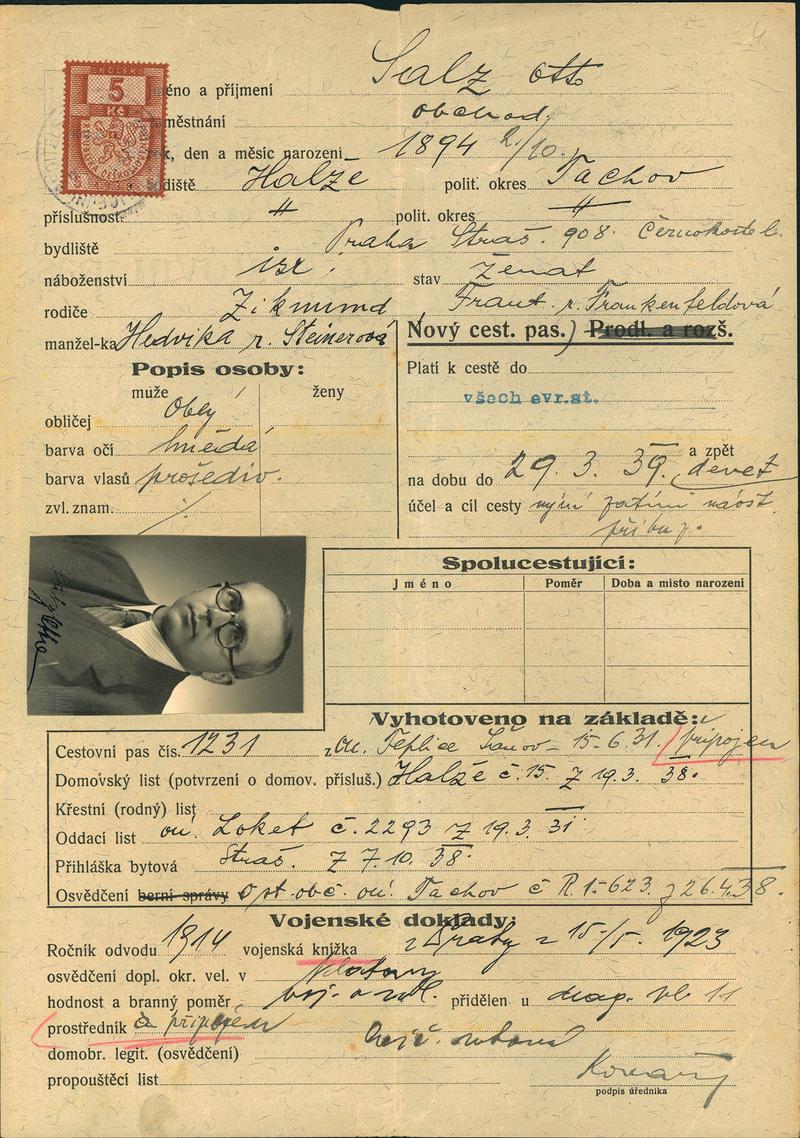 KOLEK
5
Kč
jméno a příjmení Salz Otto
zaměstnání obchod.
rok, den a měsíc narození 1894 2/10.
rodiště Halže polit. okres Tachov
příslušnost 〃 polit. okres 〃
bydliště Praha Straš. 908 Černokostel.
náboženství isr. stav ženat
rodiče Zikmund , Frant. r. Frankenfeldová
manžel-ka Hedvika r. Steinerová
Nový cest. pas.) Prodl. a rozš.
Popis osoby:
muže ženy
obličej Oblý
barva očí hnědá
barva vlasů prošediv.
zvl. znam.
Platí k cestě do
všech evr.st.
a zpět
na dobu do 29. 3. 39. devět
účel a cíl cesty nyní zatím
příbuz.
Spolucestující:
Jméno Poměr Doba a místo narození
Vyhotoveno na základě:
Cestovní pas čís. 1231 z ou. Teplice Šanov 15.6.31. připojen
Domovský list (potvrzení o domov. přísluš.) Halže č. 15. z 19.3. 38.
Křestní (rodný) list
Oddací list ou. Loket č. 2293 z 19.3. 31
Přihláška bytová Straš. z 7.10. 38.
Osvědčení berní správy o st. obč. ou. Tachov č R.1-623. z 26.4.38.
Vojenské doklady:
Ročník odvodu 1914 vojenská knížka z Prahy z 15/5. 1923
osvědčení dopl. okr. vel. v Klatovy
hodnost a branný poměr voj. přidělen u mag. 11
prostředník a připojen
domobr. legit. (osvědčení)
propouštěcí list
podpis úředníka